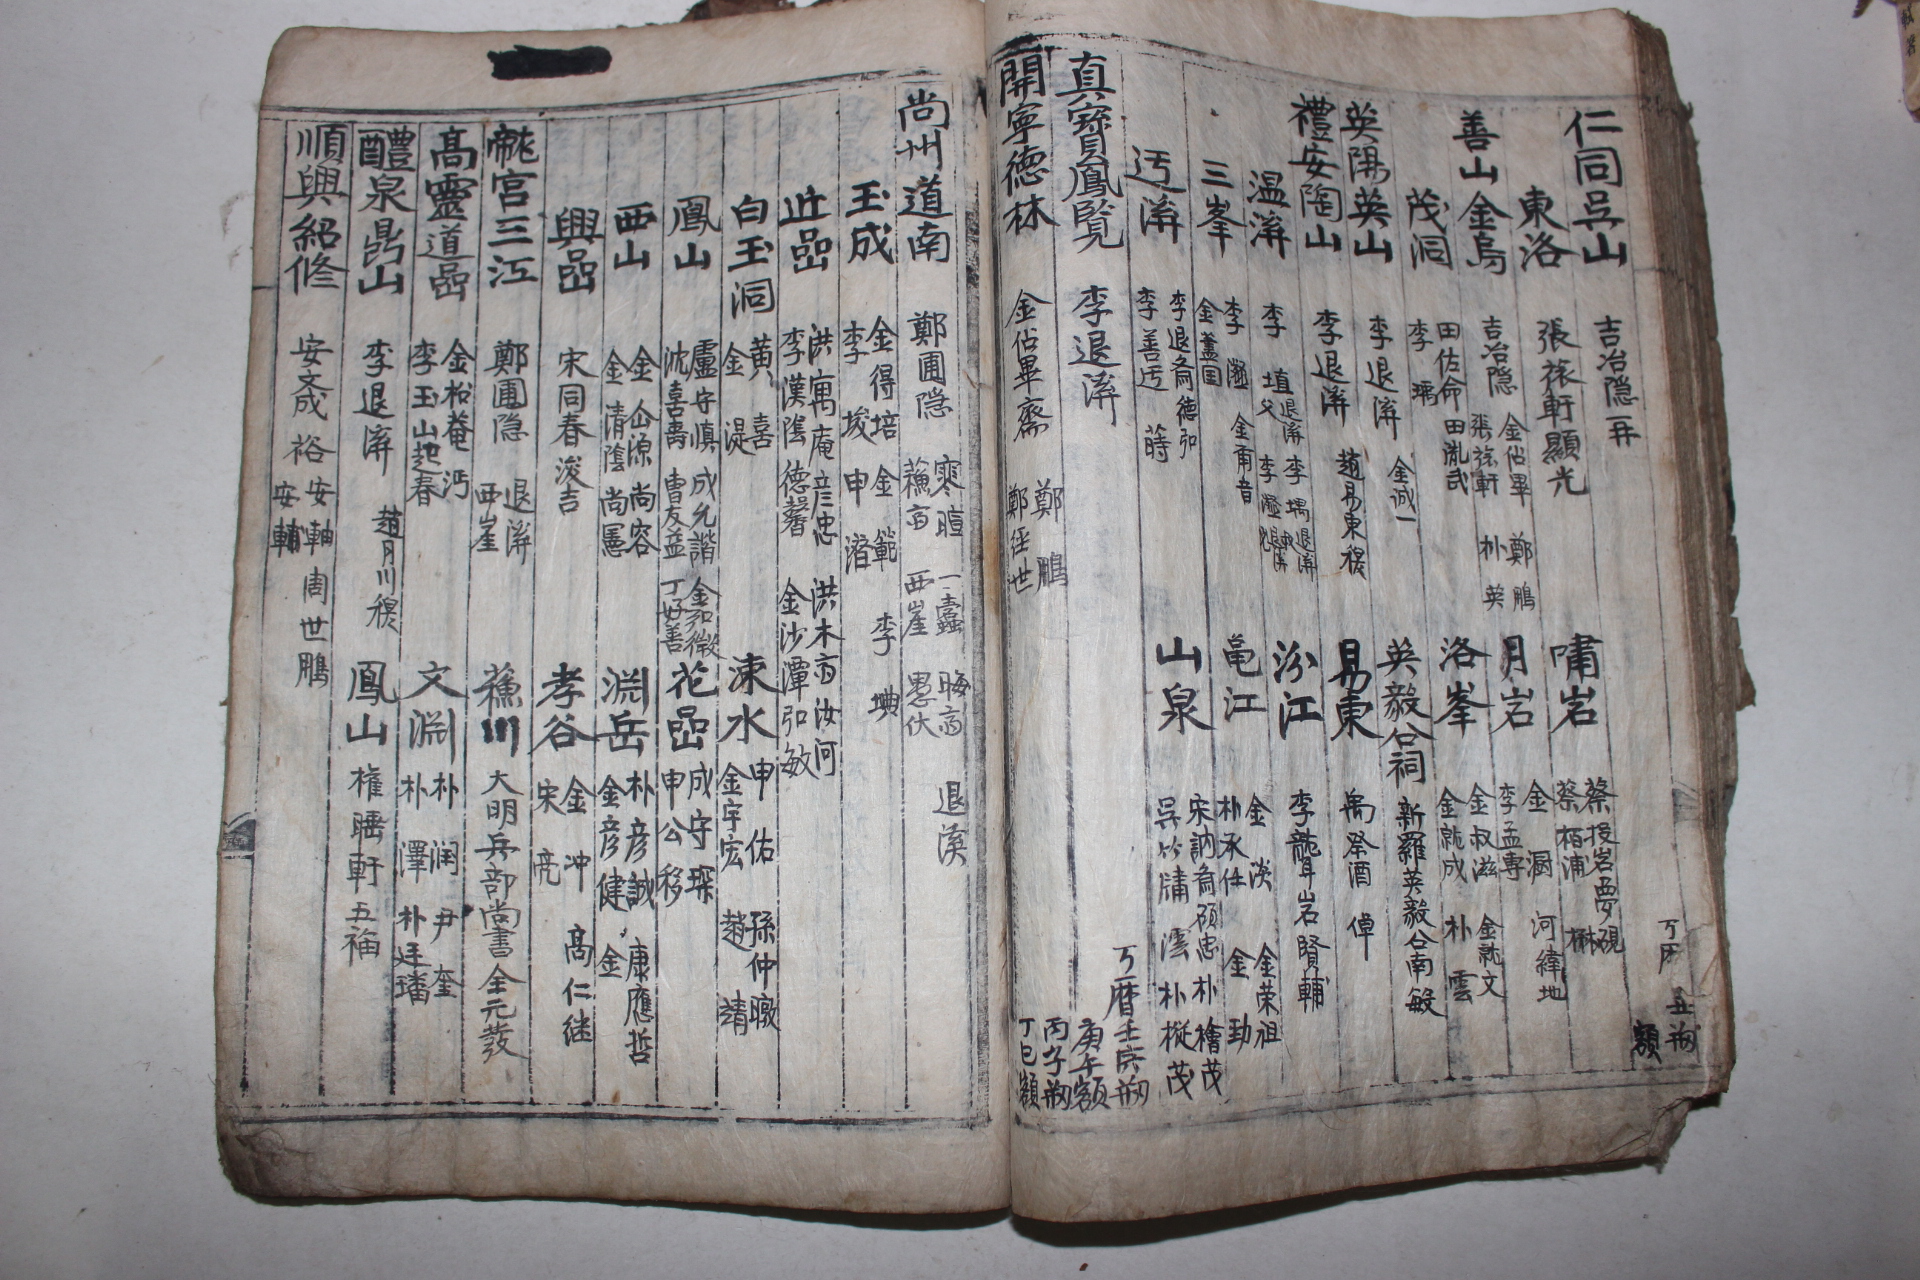 仁同吳山 吉冶隠再
東洛 張旅軒顯光 嘯岩 蔡投岩夢硯 蔡栢浦楙
善山金烏 吉冶隠 金佔畢 張旅軒 鄭鵬 朴英 月岩 金澍 李孟専 河緯地
茂洞 田佐命 李瑀 田胤武 洛峯 金叔滋 金就成 金就文 朴雲
英陽英山 李退溪 金誠一 英毅公祠 新羅英毅公南敏
禮安陶山 李退溪 趙易東穆 易東 禹祭酒倬
温溪 李埴 父退溪 李堣 退溪 李瀣 退溪兄 汾江 李聾岩賢輔
三峯 李瀣 金蓋国 金雨音 亀江 金淡 朴承任 金榮祖 金劲
迃溪 李退斎德弘 李善迃蒔 山泉 宋訥斎碩忠 吳竹牖澐 朴檜茂 朴樅茂
真寶鳳覧 李退溪
開寧德林 金佔畢斎 鄭鵬 鄭經世
万暦 壬寅刱
庚午額
丙子刱
丁巳額
尚州道南 鄭圃隠 寒暄 一蠹 晦斎 退溪 蘓斎 西崖 愚伏
玉成 金得培 李埈 金範 申濳 李㙉
近嵒 洪寓庵彦忠 李漢陰德馨 洪木斎汝河 金沙潭弘敏
白玉洞 黃喜 金湜 涑水 申佑 金宇宏 孫仲暾 趙靖
鳳山 盧守慎 沈喜壽 成允諧 曺友益 金弘微 丁好善 花嵒 成守琛 申公移
西山 金仙源尚容 金清陰尚憲 淵岳 朴彦誠 金彦健 康應哲 金
興嵒 宋同春浚吉 孝谷 金冲 宋亮 高仁継
龍宮三江 鄭圃隠 退溪 西崖 蘓川 大明兵部尚書 全元發
高靈道嵒 金松菴沔 李玉山起春 文淵 朴潤 朴澤 尹奎 朴廷璠
醴泉鼎山 李退溪 趙月川穆 鳳山 權睡軒五福
順興紹修 安文成裕 安軸 安輔 周世鵬